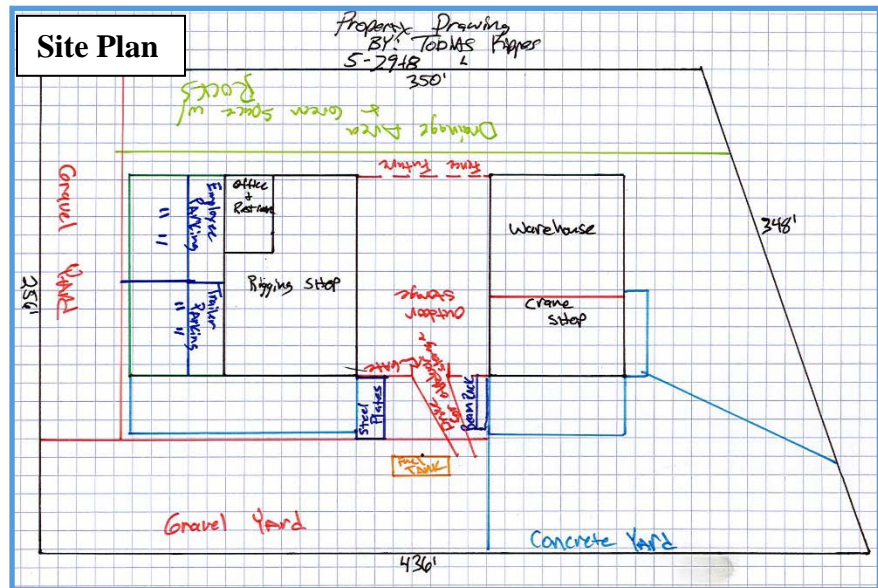 Site Plan
Property Drawing
BY: TOBIAS Kappes
5-29-18
350'
Drainage Area
& Green Space w/
ROCKS
Fence Future
Gravel YARD
256'
348'
Employee
PARKING
" "
Office
&
Restroom
Trailer
PARKING
" "
Rigging SHOP
Outdoor
storage
Warehouse
Crane
SHOP
GATE
Steel
Plates
Drive
for outdoor
storage
Beam Rack
Fuel
TANK
Gravel YARD
Concrete YARD
436'